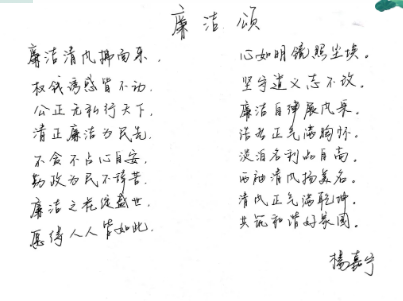 廉洁颂
廉洁清风拂面来，
心如明镜照尘埃。
权钱诱惑皆不动，
坚守道义志不改。
公正无私行天下，
廉洁自律展风采。
清正廉洁为民先，
浩然正气满胸怀。
不贪不占心自安，
淡泊名利品自高。
勤政为民不辞苦，
两袖清风扬美名。
廉洁之花绽盛世，
清风正气满乾坤。
愿得人人皆如此，
共筑和谐好家园。
杨嘉宁